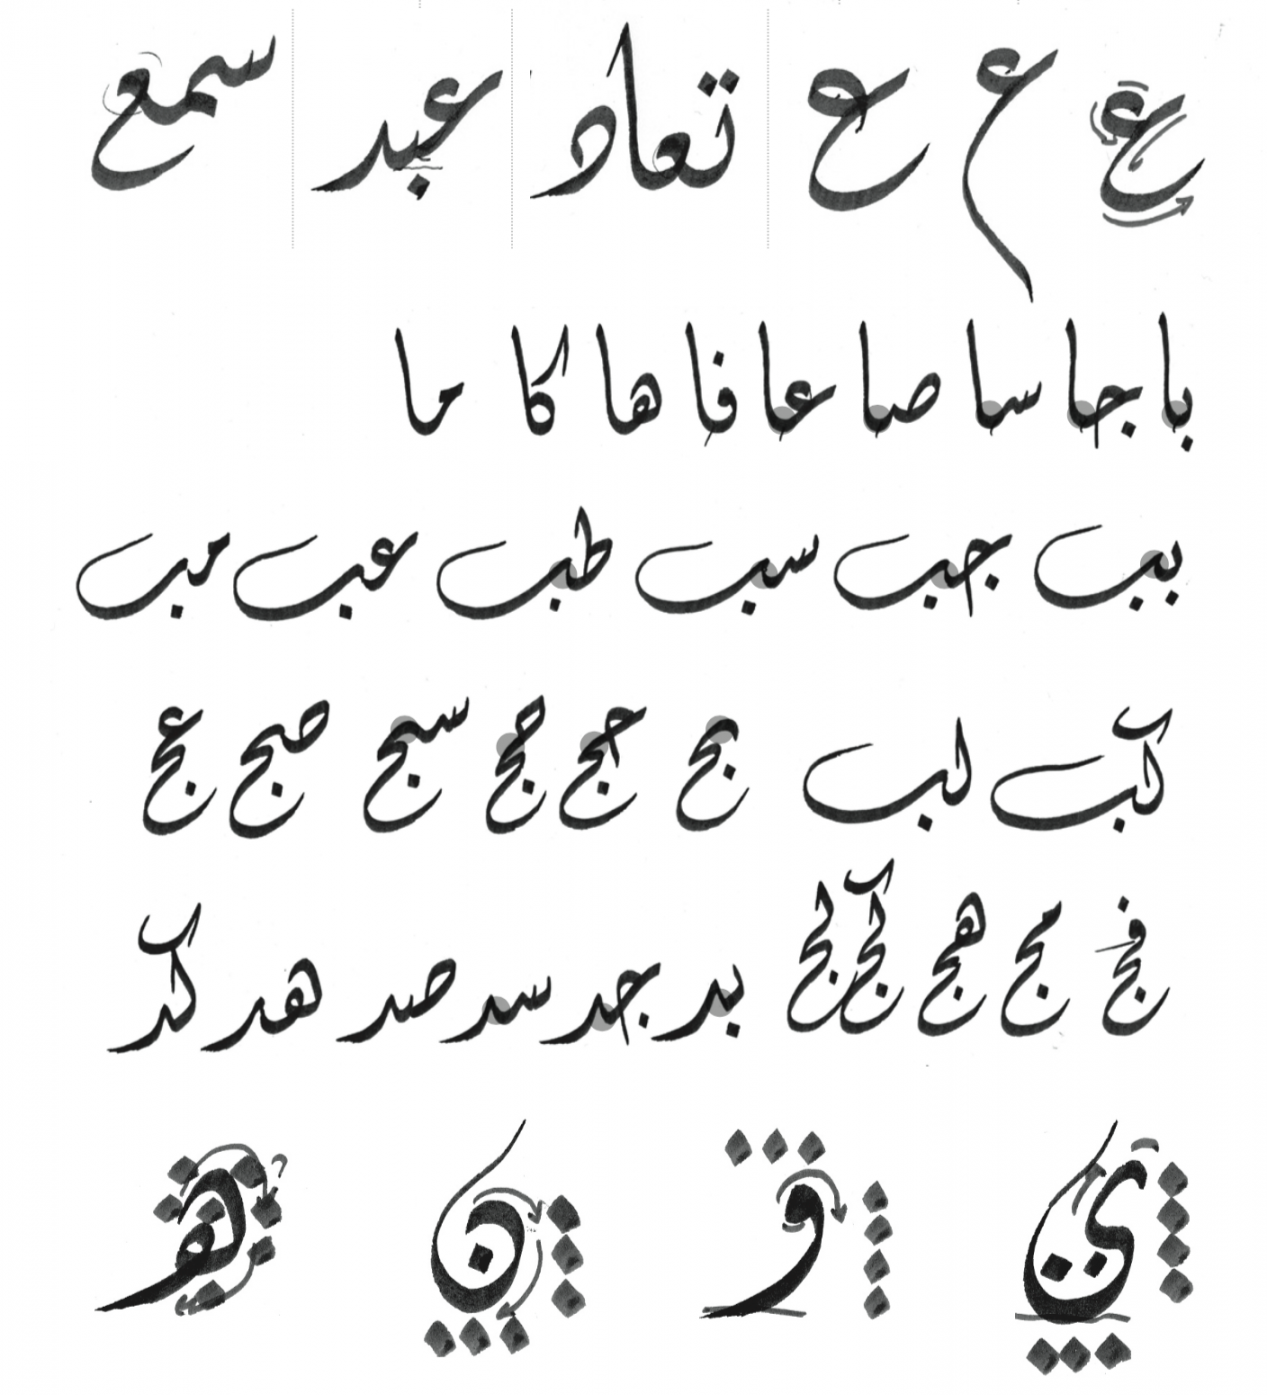 ع ع ع تعاد عبد سمع
با جا سا صا عا فا ها كا ما
بب جب سب طب عب مب
كب لب بج حج حج سج صج عج
فج مج هج كج لج بد جد سد صد هد كد
ي و ن